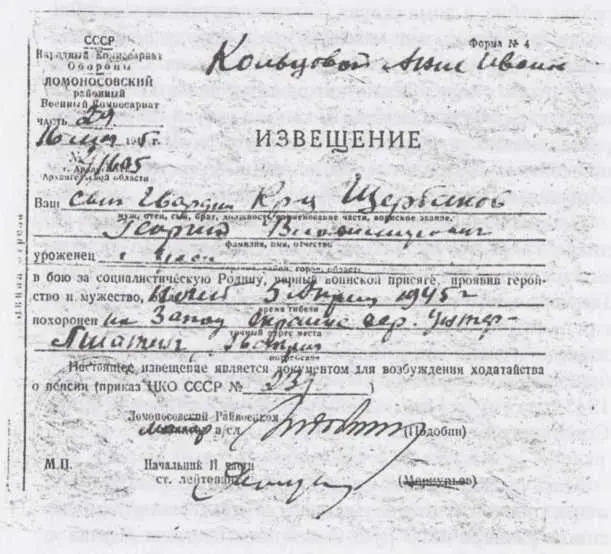 СССР
Народный Комиссариат
Обороны
ЛОМОНОСОВСКИЙ
районный
Военный Комиссариат
часть
16 мая 1945 г.
№ 4/1605
г. Архангельск
Архангельской области
Форма № 4
Кольцовой Анне Иван
ИЗВЕЩЕНИЕ
Ваш сын Гвардии Кра Щербаков
муж, отец, сын, брат, должность, наименование части, воинское звание.
Георгий Владимирович
фамилия, имя, отчество
уроженец
в бою за социалистическую Родину, верный воинской присяге, проявив герой-
ство и мужество, 3 Апреля 1945 г
время гибели
похоронен на Запад окраине дер. Унтер-
точный адрес места
Австрия
погребения
Настоящее извещение является документом для возбуждения ходатайства
о пенсии (приказ НКО СССР № 237 )
Ломоносовский Райвоенком
майор а/сл. (Подобин)
М.П.
Начальник II части
ст. лейтенант